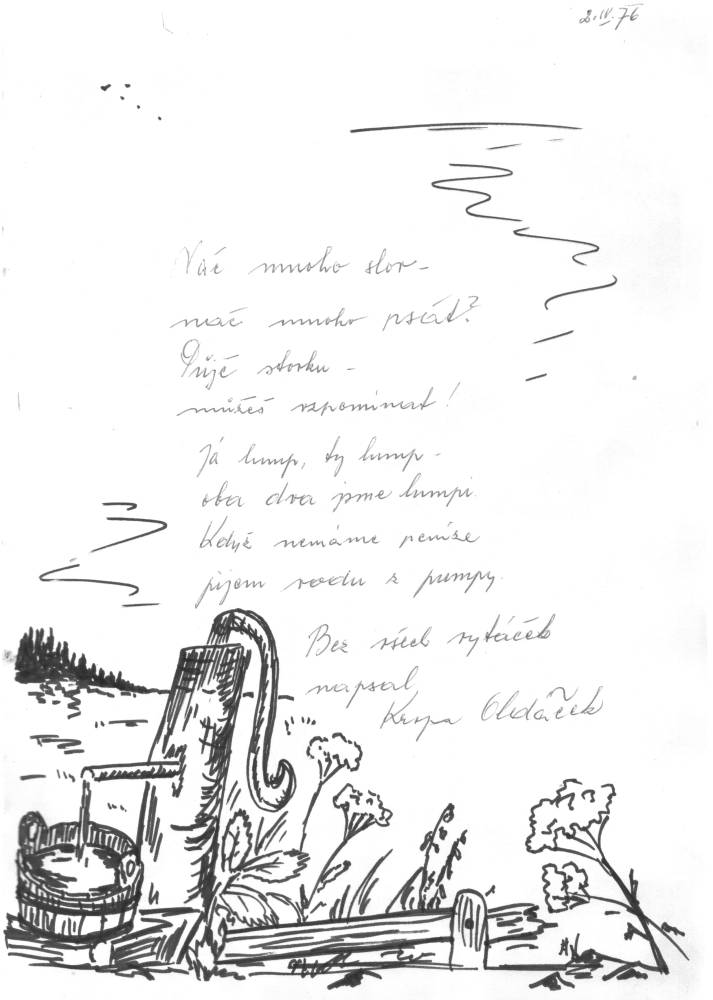 2.IV.76
Nač mnoho slov-
nač mnoho psát?
Půjč stovku -
můžeš vzpomínat!
Já lump, ty lump -
oba dva jsme lumpi.
Když nemáme peníze
pijem vodu z pumpy.
Bez všech vytáček
napsal
Oldáček